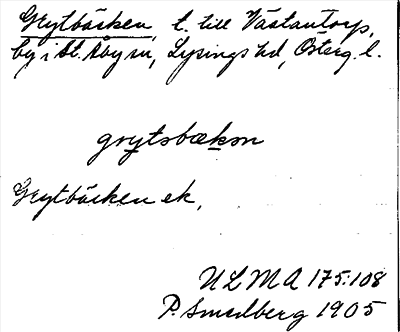 Grytbäcken, t. till Västantorp,
by i St. Åby sn, Lysings hd, Österg. l.
grytsbækən
Grytbäcken ek,
ULMA 175:108
P. Smedberg 1905